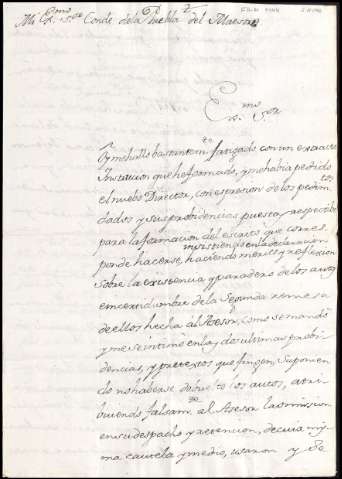 Mi Exmo. Sor. Conde de la Puebla del Maestre
Exmo. Sor.
Oy me hallo bastantemte. fatigado con un extracto
Instruccion que he formado, y me habia pedido
el nuebo Director, con expresion de los pedimtos.
dados y sus probidencias puestas, respectibe
para la formacion del escrito que corres-
insistiendo en la declaracion
ponde hacerse, haciendo merito y reflexion
sobre la existencia y paradero de los autos
en certidumbre de la segunda remesa
de ellos hecha al Asesor, como se mandó
y me se intimó en las dos ultimas probi-
dencias, y pretextos que fingen, suponien
do no haberse debuelto los autos, atri-
buiendo falsamte. al Asesor la omision
en su despacho y retencion, de cuia mis-
ma cautela y medio, usaron y de